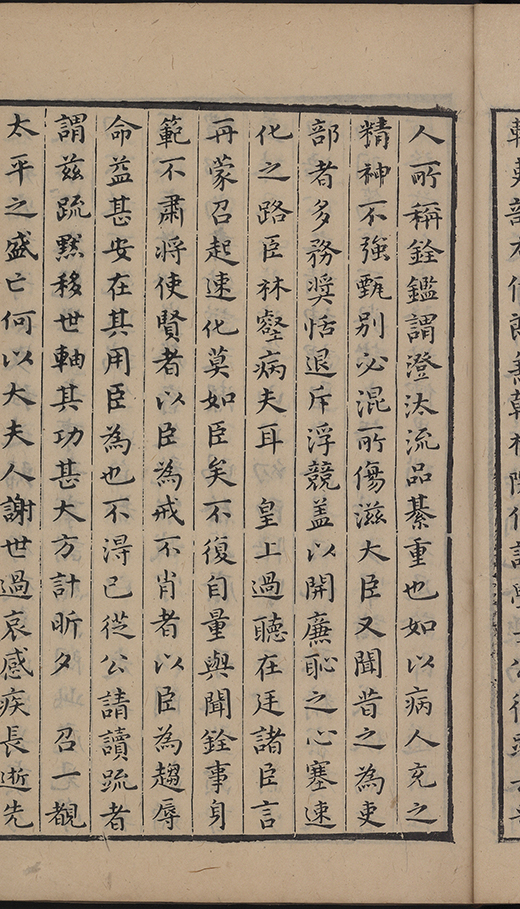 人所稱銓鑑謂澄汰流品綦重也如以病人充之
精神不強甄別必混所傷滋大臣又聞昔之為吏
部者多務奨恬退斥浮競盖以開廉恥之心塞速
化之路臣林壑病夫耳　皇上過聽在廷諸臣言
再蒙召起速化莫如臣矣不復自量與聞銓事身
範不肅將使賢者以臣為戒不肖者以臣為趨辱
命益甚安在其用臣為也不得已從公請讀疏者
謂兹疏黙移世軸其功甚大方計昕夕　召一覩
太平之盛亡何以大夫人謝世過哀感疾長逝先